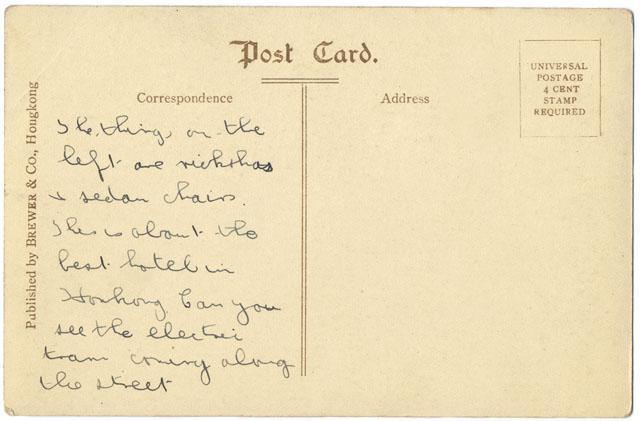 Post Card.
Correspondence
Address
UNIVERSAL
POSTAGE
4 CENT
STAMP
REQUIRED
Published by BREWER & CO., Hongkong
The things on the
left are rickshas
& sedan chairs.
This is about the
best hotel in
Honkong Can you
see the electric
tram coming along
the street